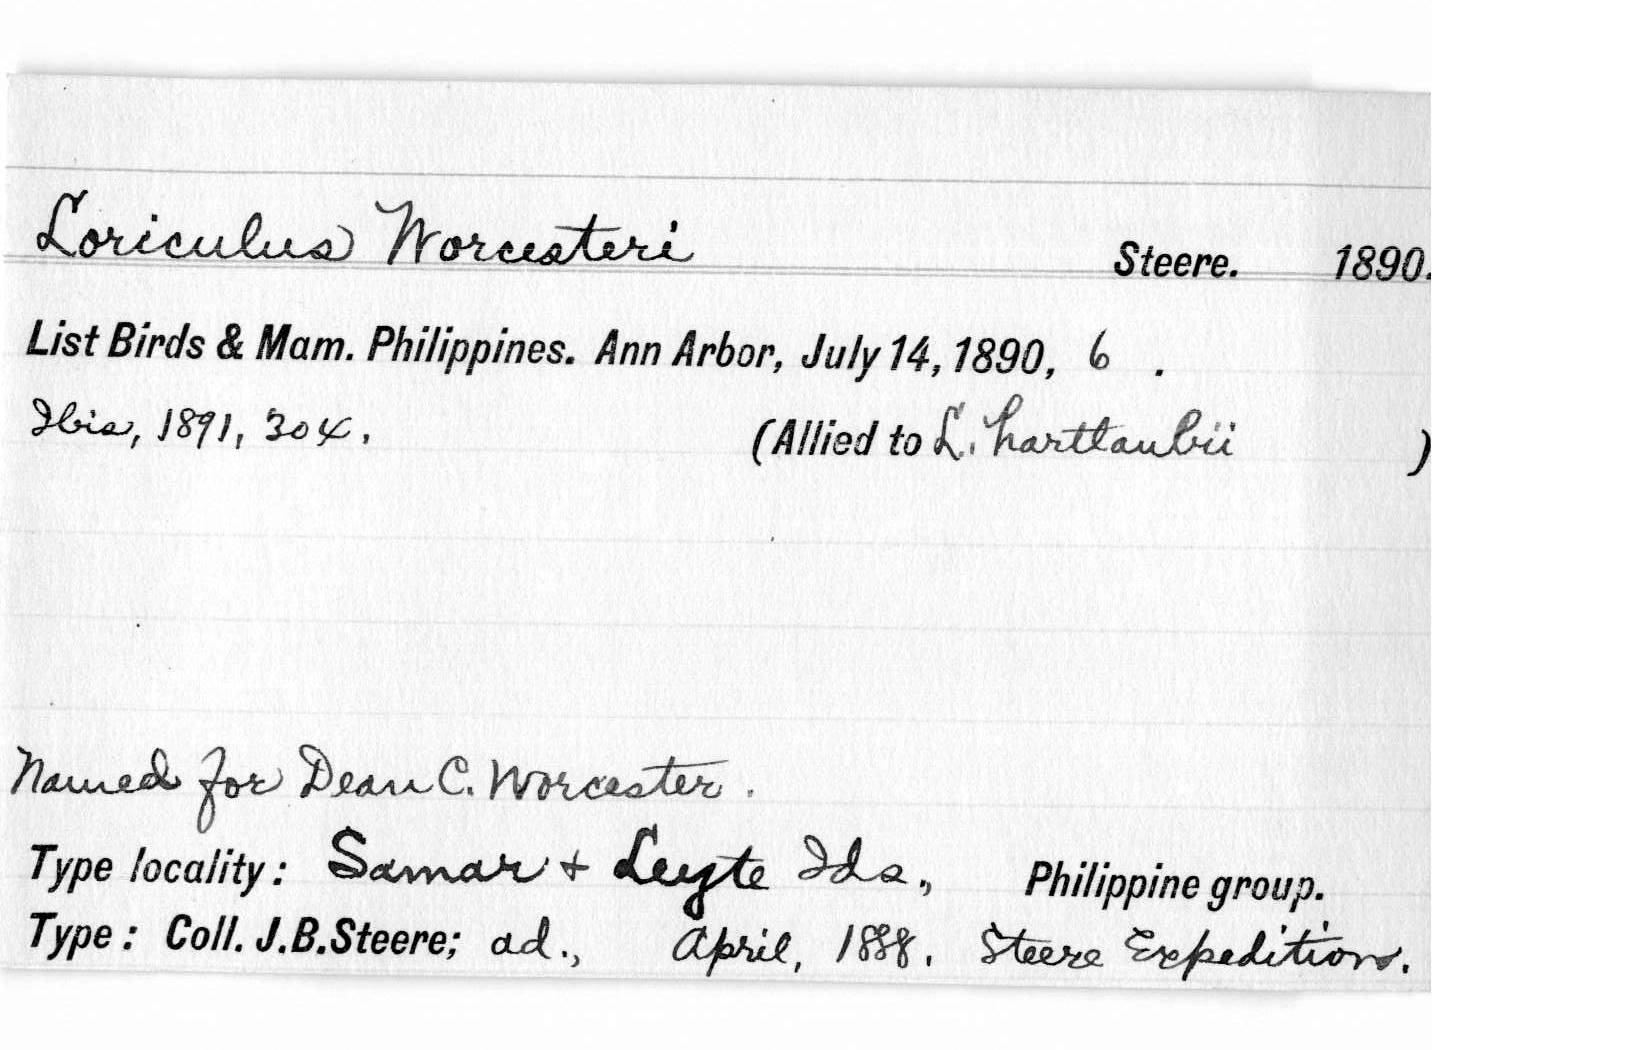 Loriculus Worcesteri Steere. 1890.
List Birds & Mam. Philippines. Ann Arbor, July 14, 1890, 6 .
Ibis, 1891, 304. (Allied to L. hartlaubii )
Named for Dean C. Worcester.
Type locality: Samar + Leyte Ids., Philippine group.
Type: Coll. J.B.Steere; ad., April, 1888. Steere Expedition.